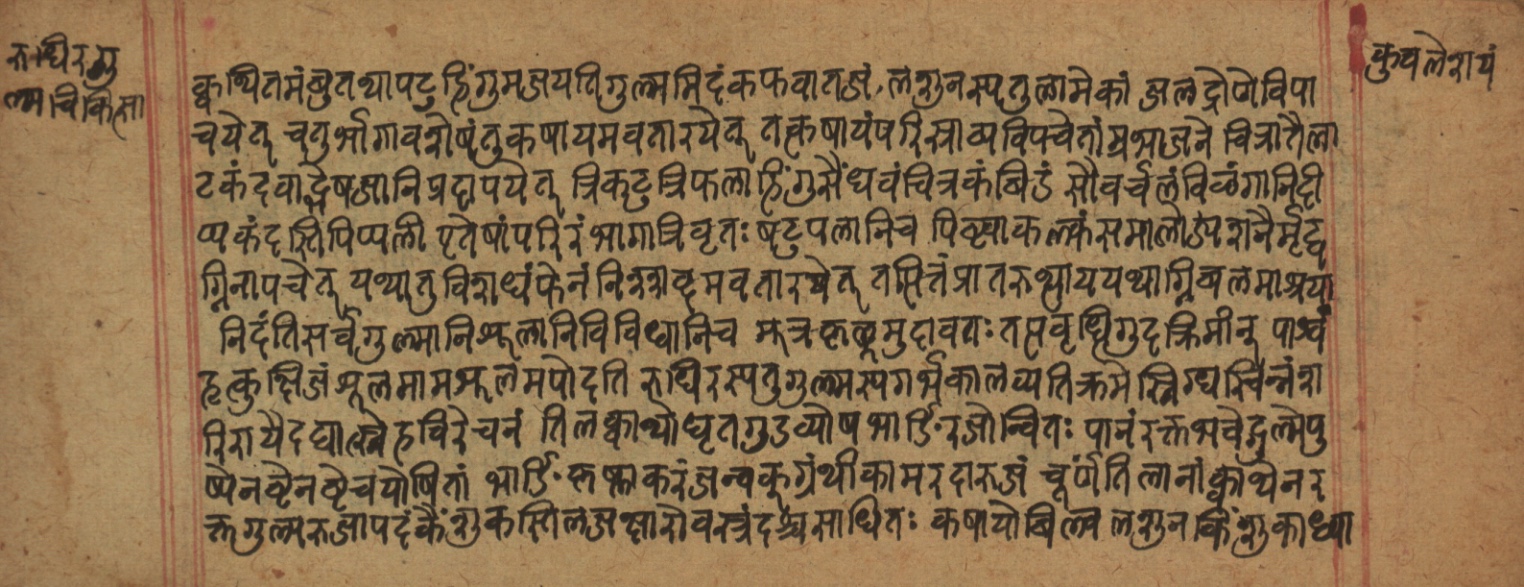 रुधिरगु
ल्मचिकित्सा
कुवलेरायं
क्वथितमंबुतथापटुहिंगुमज्जयतिगुल्ममिदंकफवातजं लशुनस्यतुलामेकां जलद्रोणेविपा
चयेत् चतुर्भागावशेषंतुकषायमवतारयेत् तत्कषायंपरिस्राव्यविपचेत्ताम्रभाजने चित्रातैला
टकंदवाद्भेषजानिप्रदापयेत् त्रिकटुत्रिफलाहिंगुसैंधवंचित्रकंबिडं सौवर्चलंविळंगानिदी
प्यकंदस्तिपिप्पली एतेषांपरिरंभागात्रिवृतः षट्पलानिच पिष्ट्वाकल्कंसमालोड्यशनैर्मृद्व
ग्निनापचेत् यथातुविराधंफेनंनिशब्दमवतारयेत् तस्पितंप्रातरुथ्थाययथाग्निबलमाश्रया
निर्दंतिसर्वगुल्मानिशूलानिविविधानिच मूत्रकृछ्रमुदावतः तस्रवृध्धिगुदक्रिमीन् पार्श्व
हृत्कुक्षिजंशूलमामशूलमपोदति रुधिरस्यतुगुल्मस्यगर्भकालव्यतिक्रमे स्निग्धस्विंन्नंश
रिरायैदद्यात्स्नेहविरेचनं तिलक्वाथोघृतगुडव्योषभार्ङि रजोन्वितः पानंरक्तभवेद्गुल्मेपु
ष्पेनष्टेनष्टेचयोषितां भार्ङि कृष्णाकरंजत्वक्ग्रंथीकामरदारुजं चूर्णंतिलानांक्वाथेनर
क्तगुल्मरुजापदं कैंशुकस्तिलजक्षारो साधितः कषायोबिल्वलशुनकिंशुकाध्या